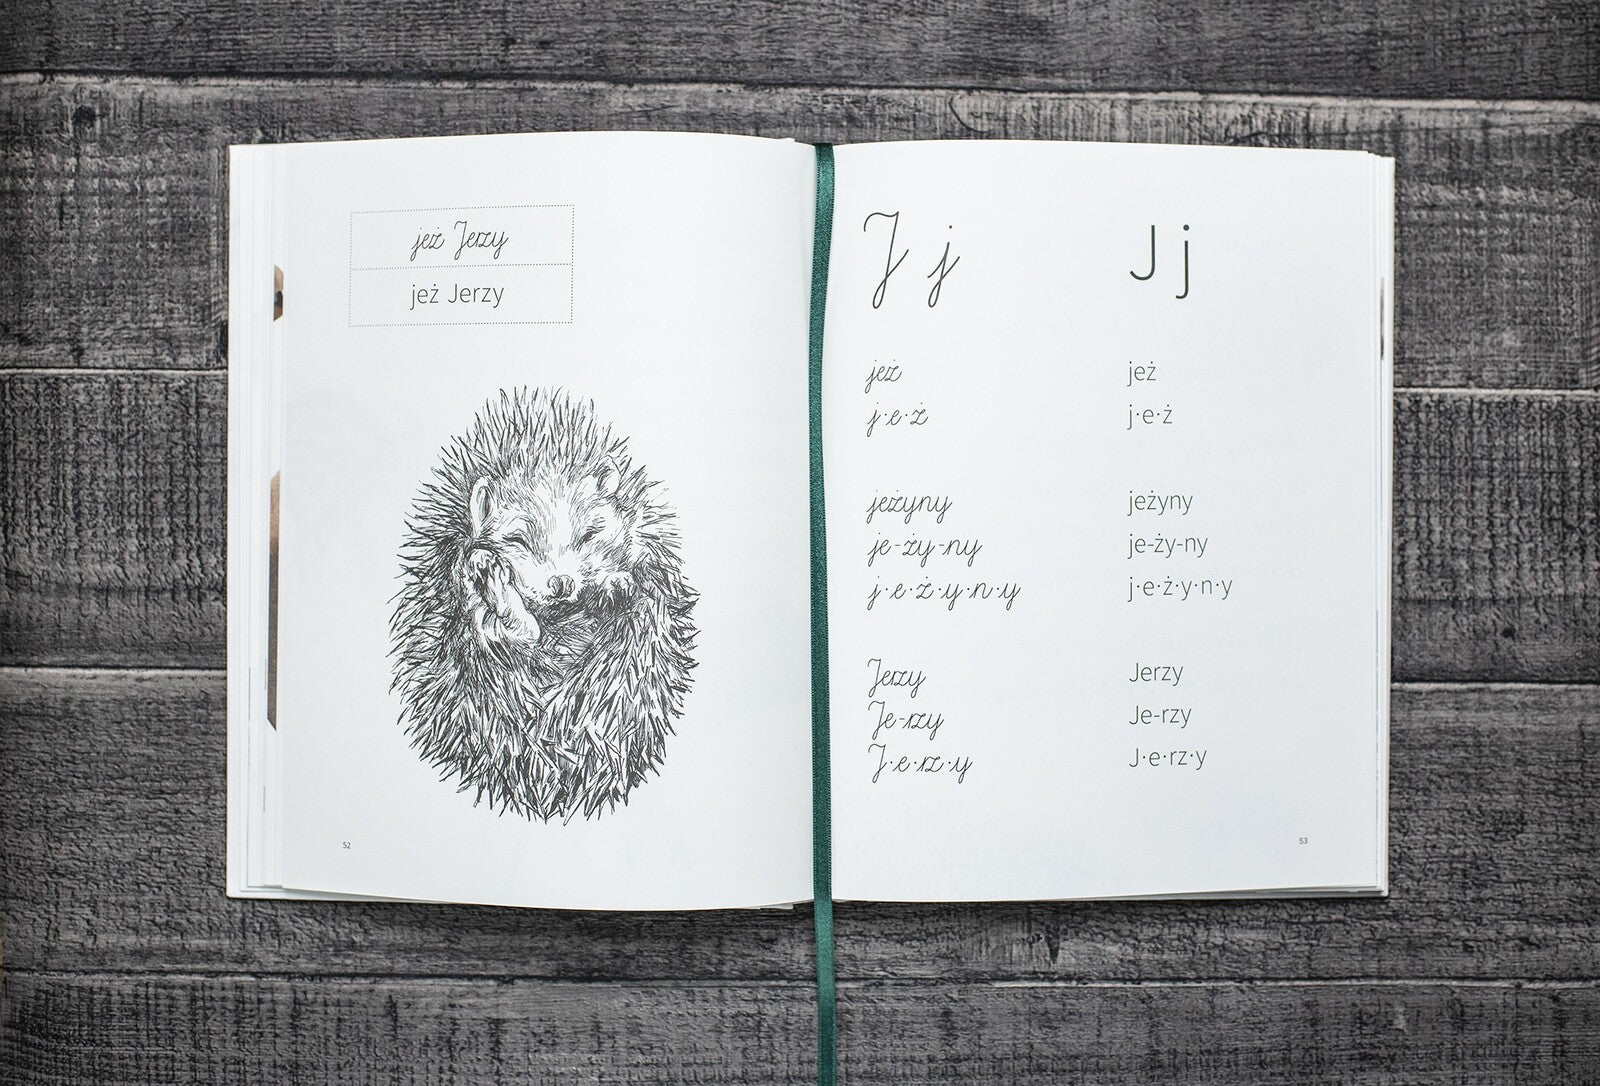 jeż Jerzy
jeż Jerzy
52
J j
J j
jeż
jeż
j·e·ż
j·e·ż
jeżyny
jeżyny
je-ży-ny
je-ży-ny
j·e·ż·y·n·y
j·e·ż·y·n·y
Jerzy
Jerzy
Je-rzy
Je-rzy
J·e·rz·y
J·e·rz·y
53